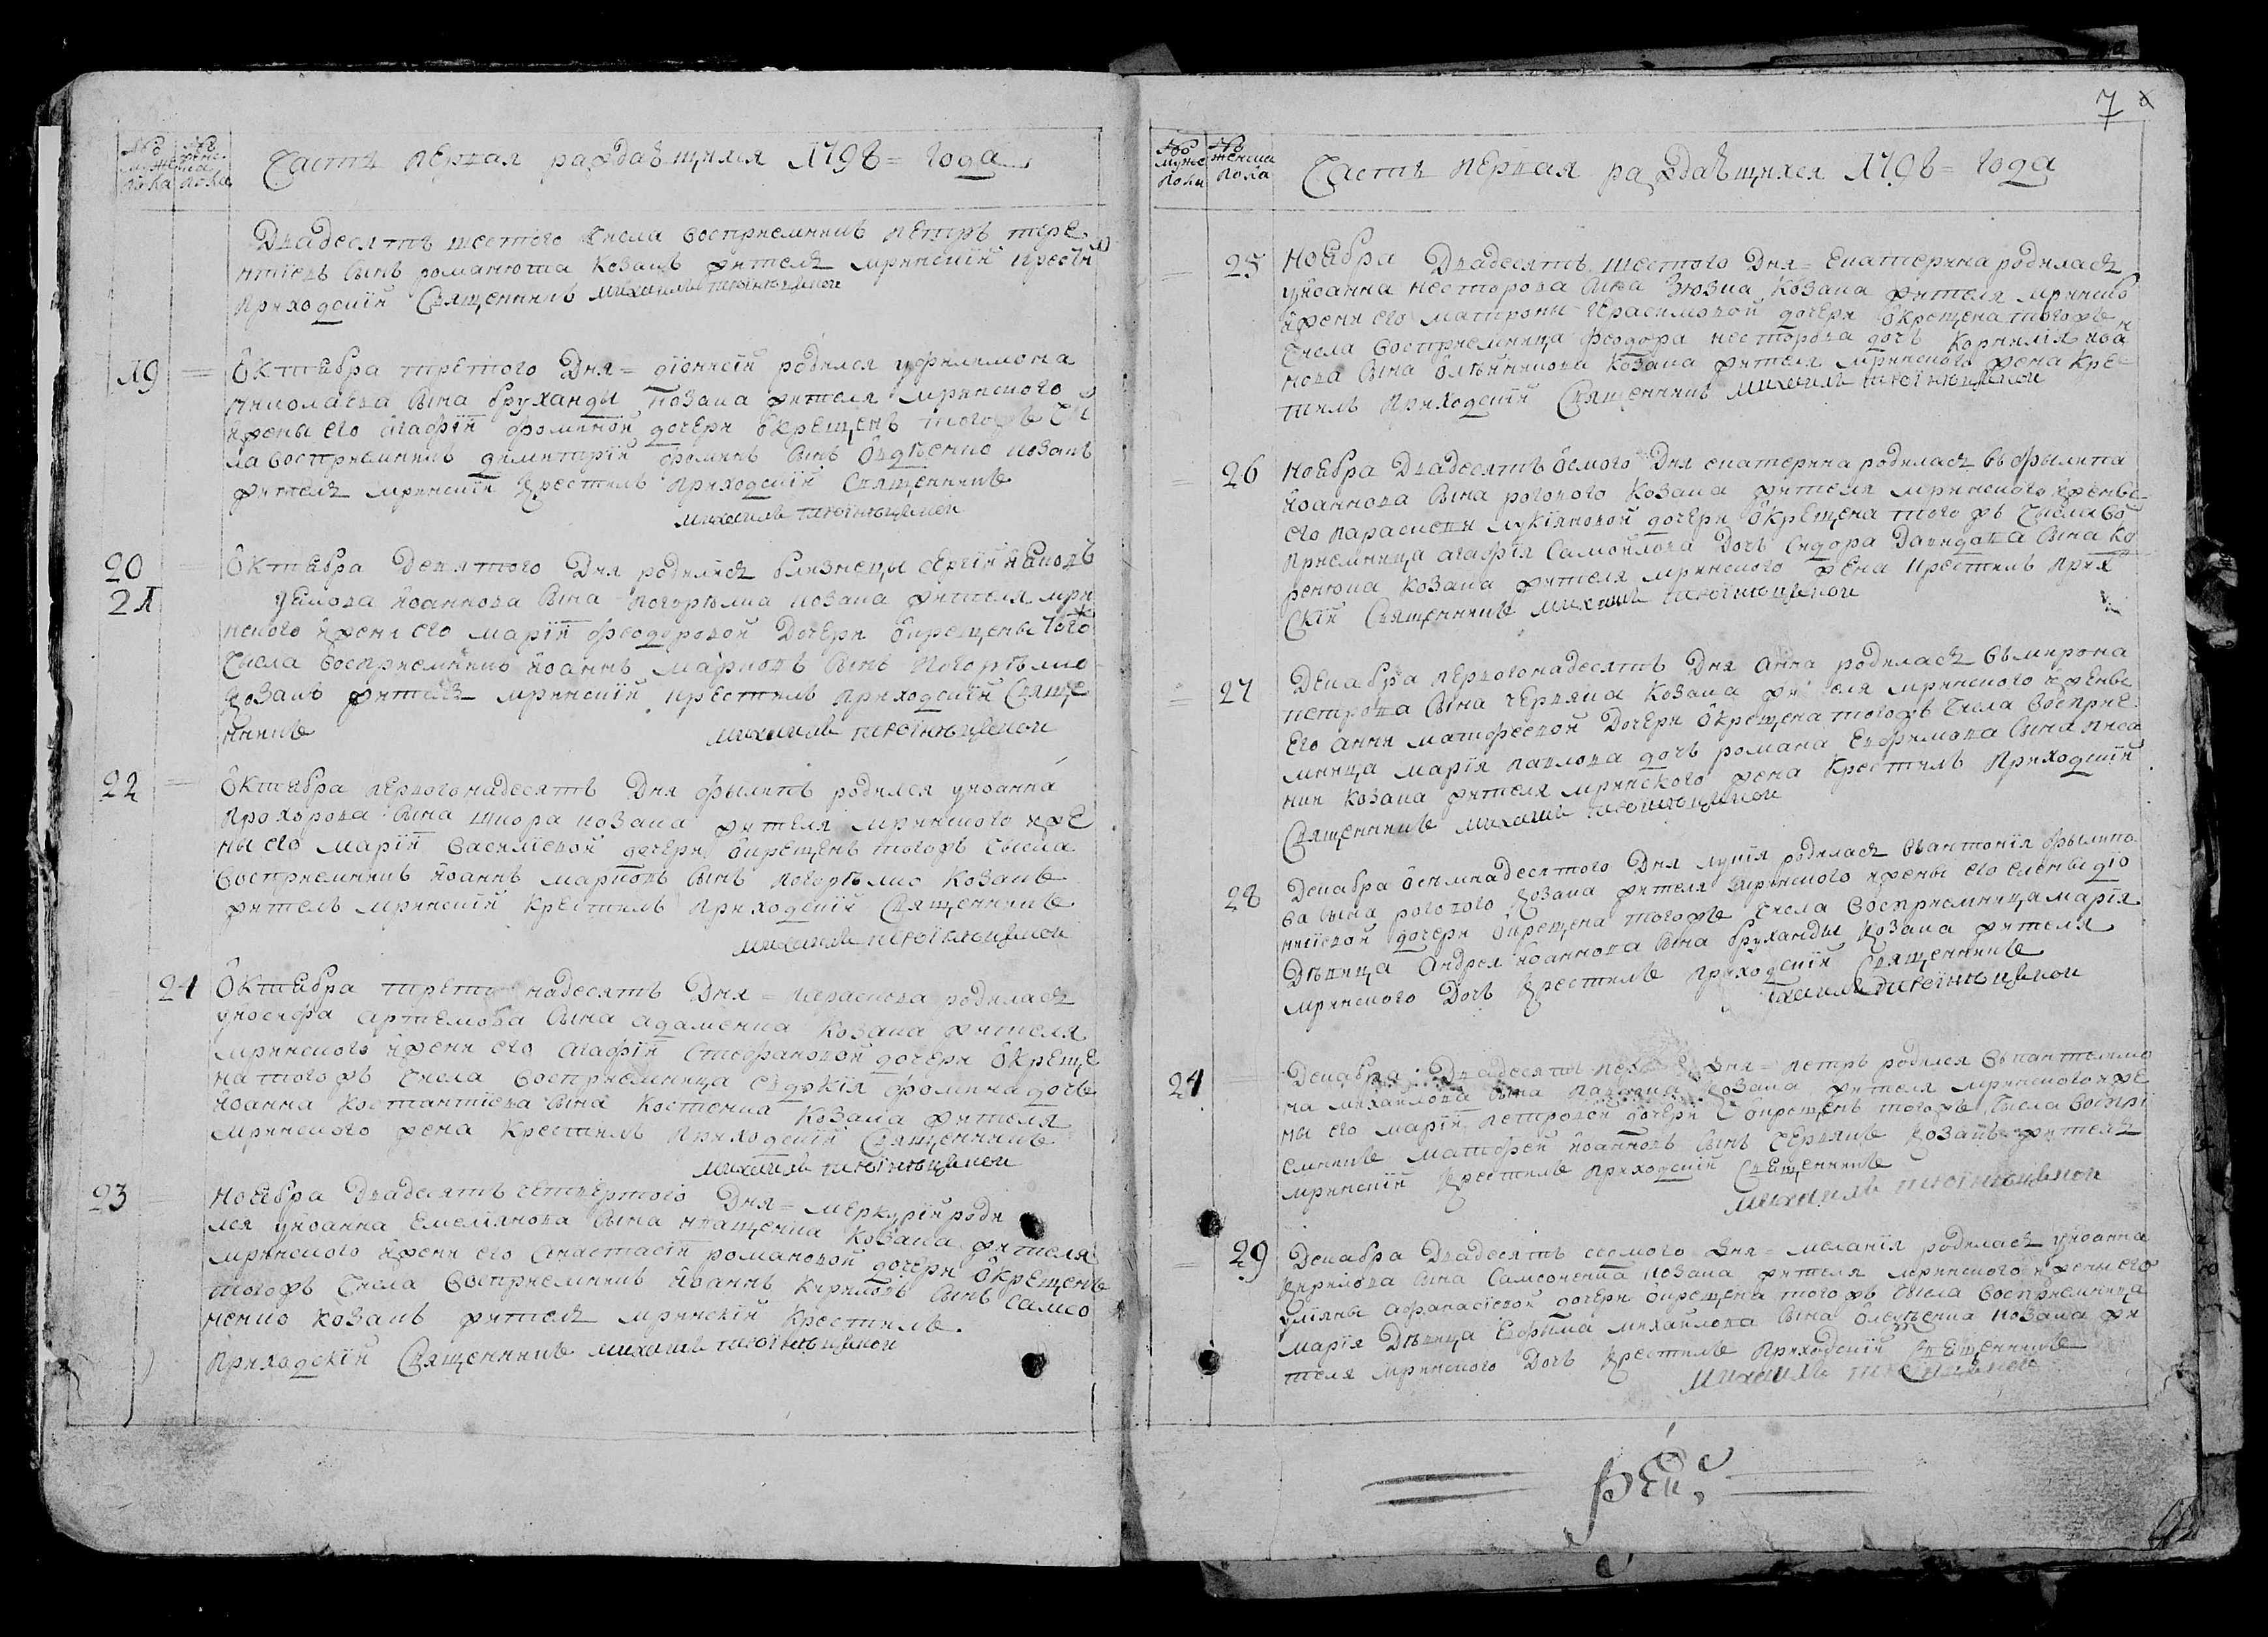 № мужеска пола
№ женска пола
Часть первая раждаѣщихся 1798 = года
Двадесятъ шестого числа восприемникъ петръ тере
нтіевъ сынъ романюта козакъ жителъ мринскій крести
приходскій священникъ михаилъ
19 = Октября третого дня = діонисій родился уфилимона
николаева сына бруханды козака жителя мринского
ижены его агафіи фоминой дочери окрещенъ тогожъ чи
ла восприемникъ димитрій фоминъ сынъ козакъ
жителъ мринскій крестилъ приходскій священникъ
михаилъ
20 Октября девятого дня родилисъ близнецы сергій иіаковъ
21 уіакова иоаннова сына погорѣлка козака жителя мри
нского ижени его маріи феодоровой дочери окрещены того
числа восприемникъ иоаннъ марковъ сынъ погорѣлко
козакъ жителъ мринскій крестилъ приходскій свяще
нникъ михаилъ
22 = Октября первогонадесять дня филипъ родился уиоанна
прохорова сына шкора козака жителя мринского иже
ны его маріи василіевой дочери окрещенъ тогожъ числа
восприемникъ иоаннъ марковъ сынъ погорѣлко козакъ
жителъ мринскій крестилъ приходскій священникъ
михаилъ
24 Октября третогонадесять дня = параскева родиласъ
уиосифа артемова сына адаменка козака жителя
мринского ижени его агафіи стефановой дочери окреще
на тогожъ числа восприемница евдокія фомина дочъ
иоанна костантіева сына костенка козака жителя
мринского жена крестилъ приходскій священникъ
михаилъ
23 Ноября двадесятъ четвертого дня = меркурій роди
лся уиоанна емеліянова сына иващенка козака жителя
мринского ижени его анастасіи романовой дочери окрещенъ
тогожъ числа восприемникъ иоаннъ кириловъ сынъ самсо
ненко козакъ жителъ мринскій крестилъ
приходскій священникъ михаилъ
7
№ мужес пола
№ женска пола
Часть первая раждаѣщихся 1798 = года
= 25 Ноября двадесятъ шестого дня = екатерина родиласъ
уиоанна несторова сына зюзка козака жителя мринско
ижени его матроны герасимовой дочери окрещена тогожъ
числа восприемница феодора несторова дочъ корнилія иоан
нова сына козака жителя мринского жена кре
тилъ приходскій священникъ михаилъ
= 26 Ноября двадесятъ осмого дня екатерина родиласъ вфилипа
иоаннова сына рогового козака жителя мринского иженъ
его параскеви лукіяновой дочери окрещена тогожъ числа во
приемница агафія самойлова дочъ сидора давидова сына ко
ренюка козака жителя мринского жена крестилъ прих
скій священникъ михаилъ
= 27 Декабря первогонадесять дня анна родиласъ вмирона
петрова сына червяка козака жителя мринского иженъ
его анни матфеевой дочери окрещена тогожъ числа восприе
мница марія павлова дочъ романа ефимова сына
козака жителя мринского жена крестилъ приходскій
священникъ михаилъ
28 Декабря осмнадесятого дня лукія родиласъ вантонія филипо
ва сына рогового козака жителя мринского ижены его елены діо
нисіевой дочери окрещена тогожъ числа восприемница марія
дѣвица андрея иоаннова сына бруханды козака жителя
мринского дочъ крестилъ приходскій священникъ
михаилъ
24 Декабря двадесятъ дня = петръ родился впантелимо
на михайлова сына козака жителя мринского иже
ны его маріи петровой дочери окрещенъ тогожъ числа воспри
емникъ матфей иоанновъ сынъ червякъ козакъ жителъ
мринскій крестилъ приходскій священникъ
михаилъ
= 29 Декабря двадесятъ седмого дня = меланія родиласъ уиоанна
кирилова сына самсоненка козака жителя мринского ижены его
уліяны афанасіевой дочери окрещена тогожъ числа восприемница
марія дѣвица ефима михайлова сына козака жи
теля мринского дочъ крестилъ приходскій священникъ
михаилъ